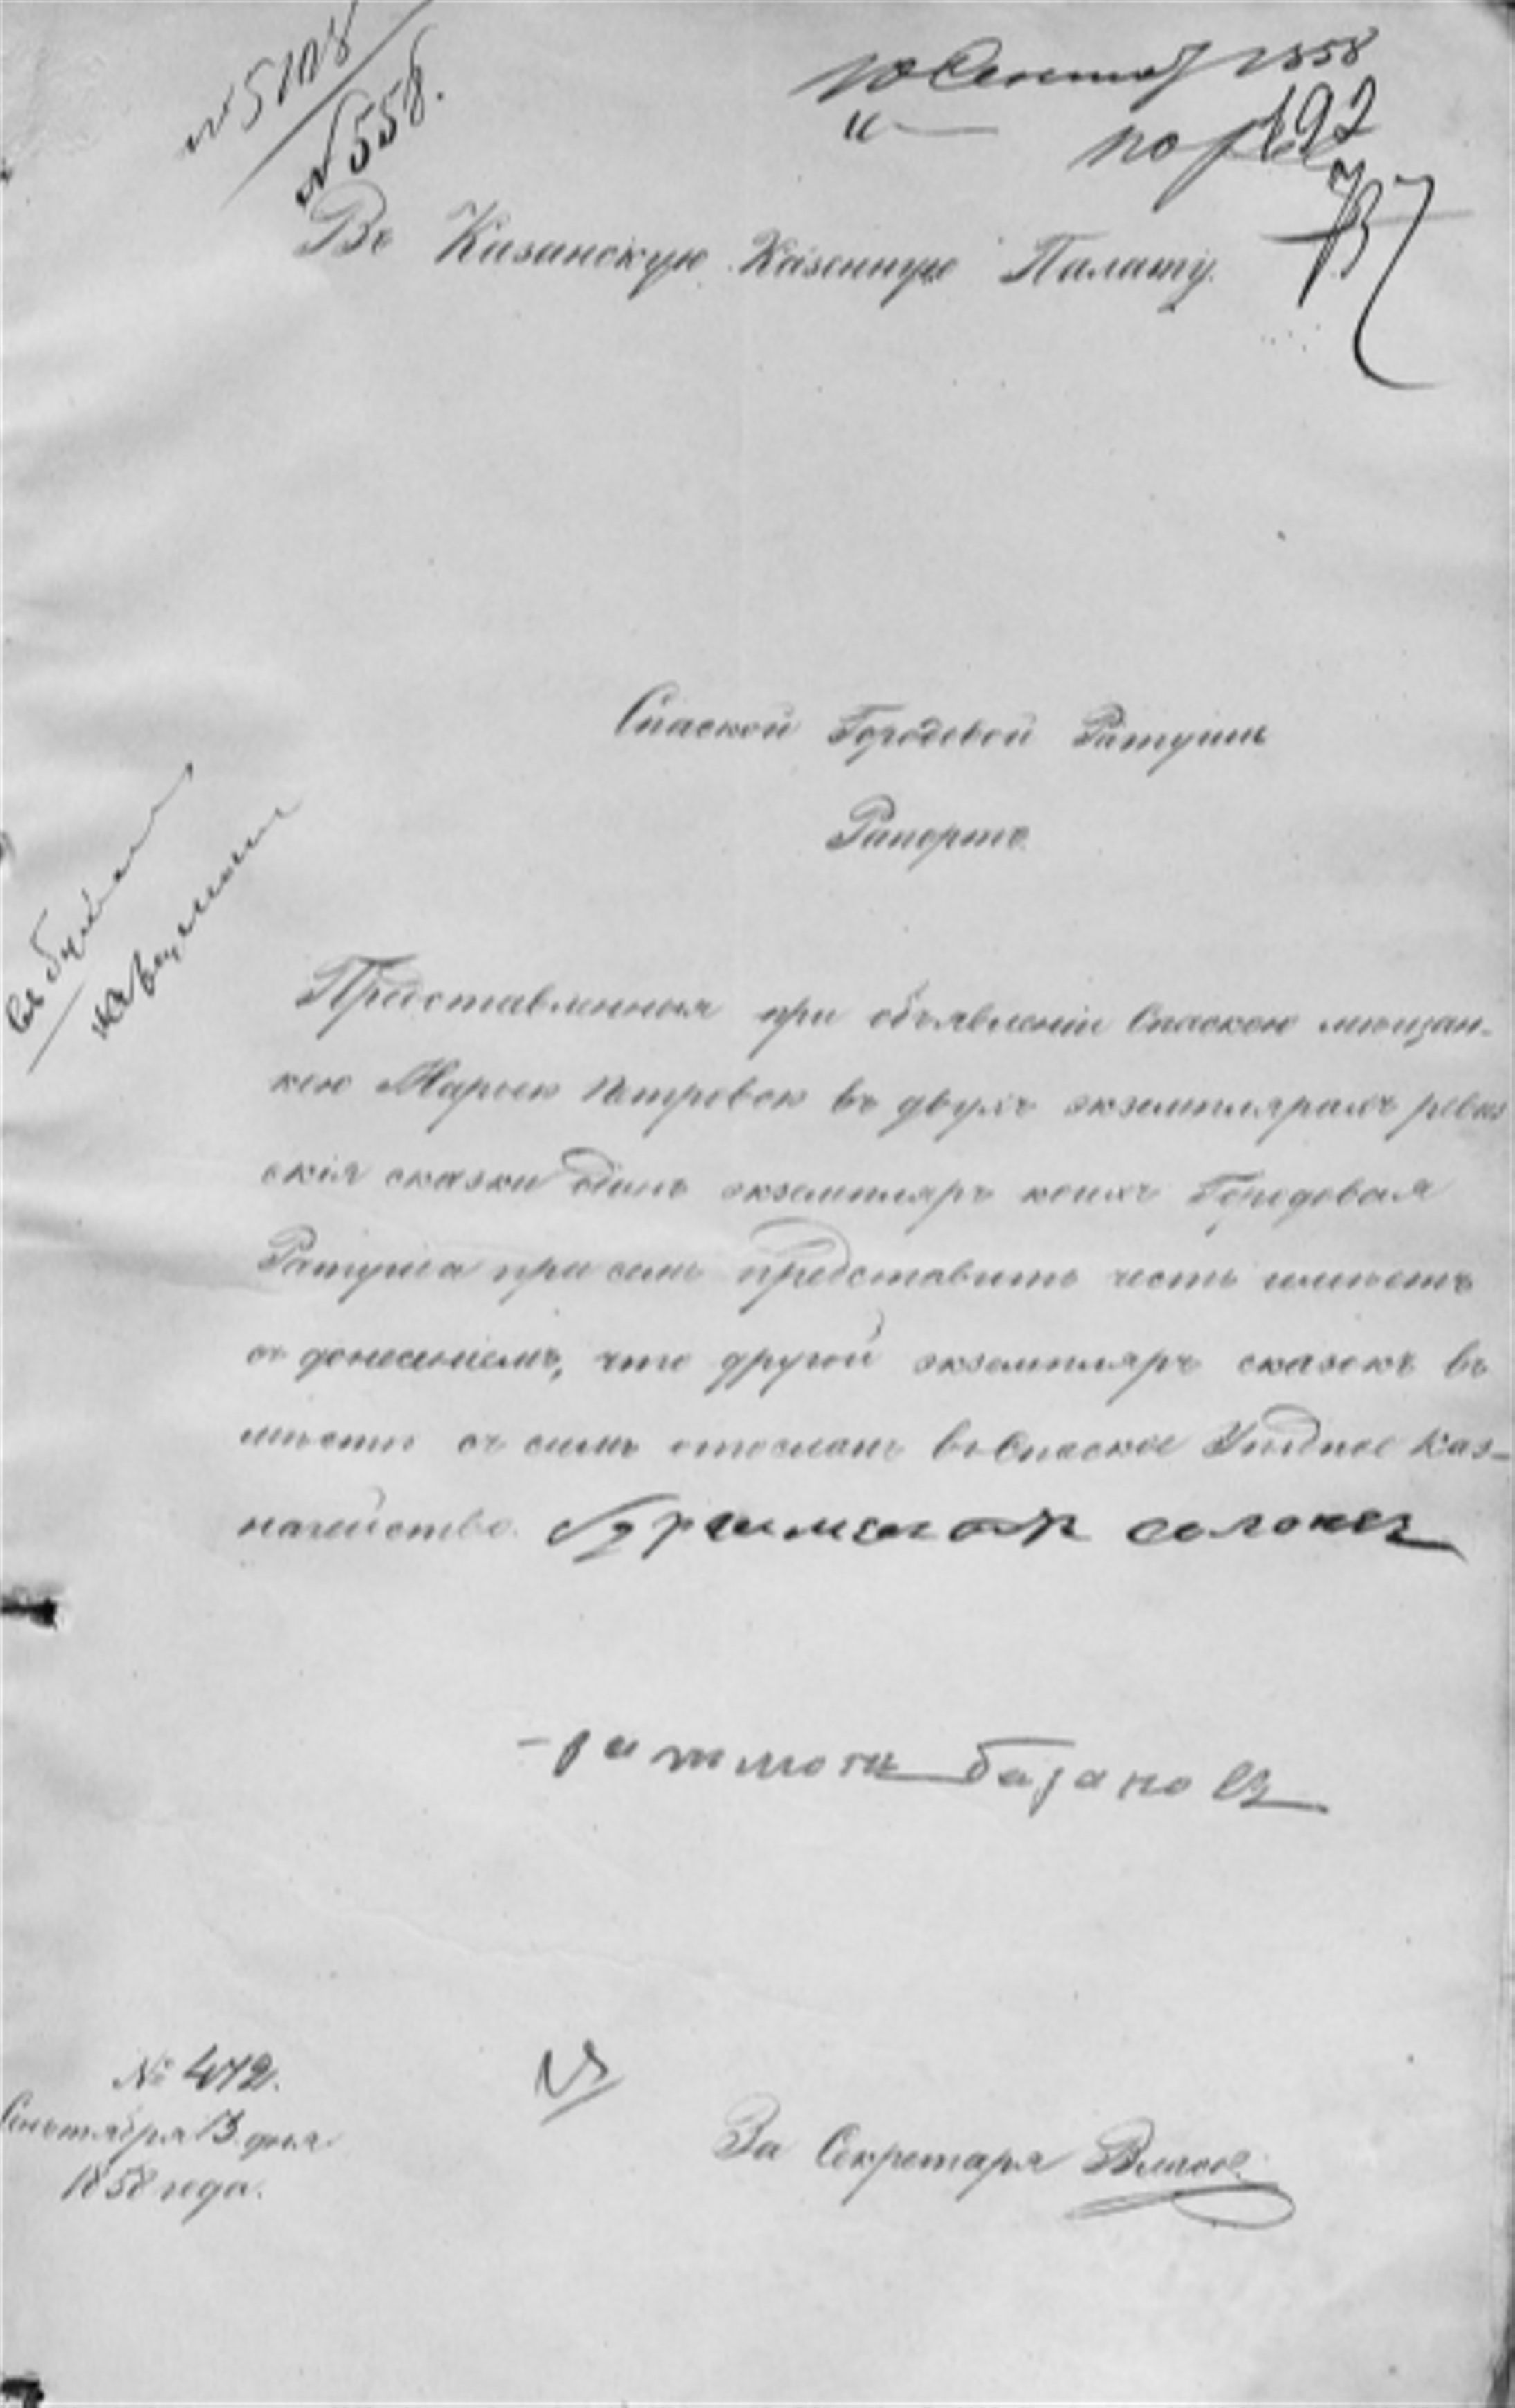 № 5108
№ 558.
Сентяб 1858
по
Въ Казанскую Казенную Палату.
Спаской Городовой Ратуши
Рапортъ
Представленныя при объявленіи Спаскою мѣщан-
кою Марьею Петровою въ двухъ экземплярахъ ревиз
скія сказки одинъ экземпляръ коихъ Городовая
Ратуша при семъ представить честь имѣетъ
съ донесеніемъ, что другой экземпляръ сказокъ въ
мѣстѣ съ симъ отосланъ въ Спаское Уѣздное Каз-
начейство.
ратманъ базановъ
№ 472.
Сентября 13 дня
1858 года.
За Секретаря Власов